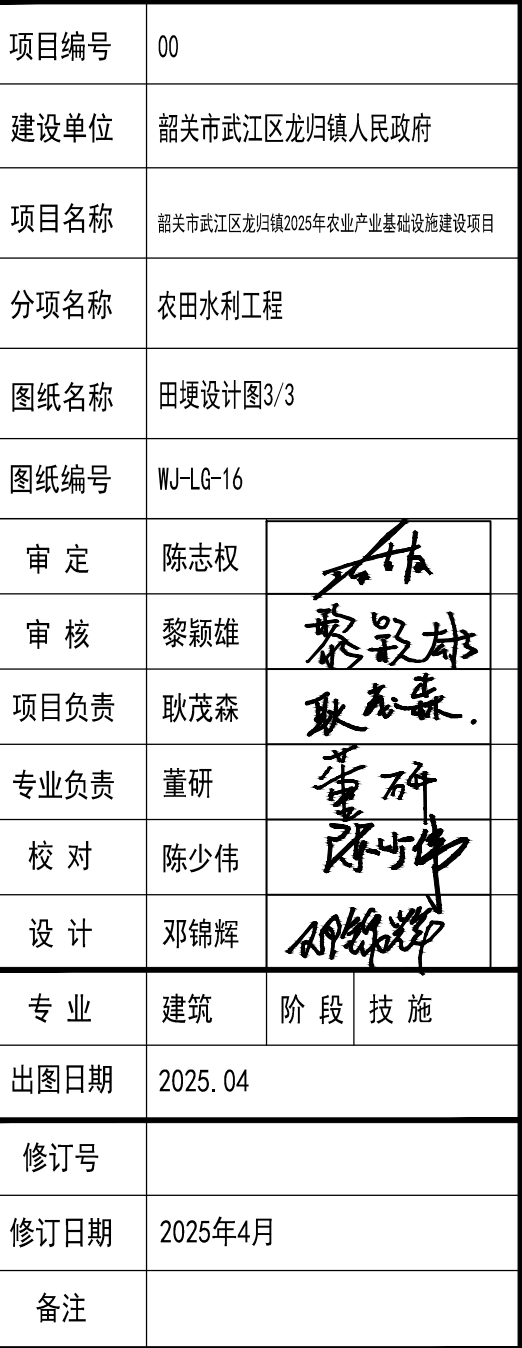 项目编号 00
建设单位 韶关市武江区龙归镇人民政府
项目名称 韶关市武江区龙归镇2025年农业产业基础设施建设项目
分项名称 农田水利工程
图纸名称 田埂设计图3/3
图纸编号 WJ-LG-16
审 定 陈志权
审 核 黎颖雄 黎颖雄
项目负责 耿茂森 耿茂森.
专业负责 董研 董研
校 对 陈少伟 陈少伟
设 计 邓锦辉 邓锦辉
专 业 建筑 阶 段 技 施
出图日期 2025.04
修订号
修订日期 2025年4月
备注